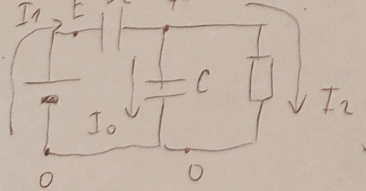 I1 E
C
I0
I2
0 0